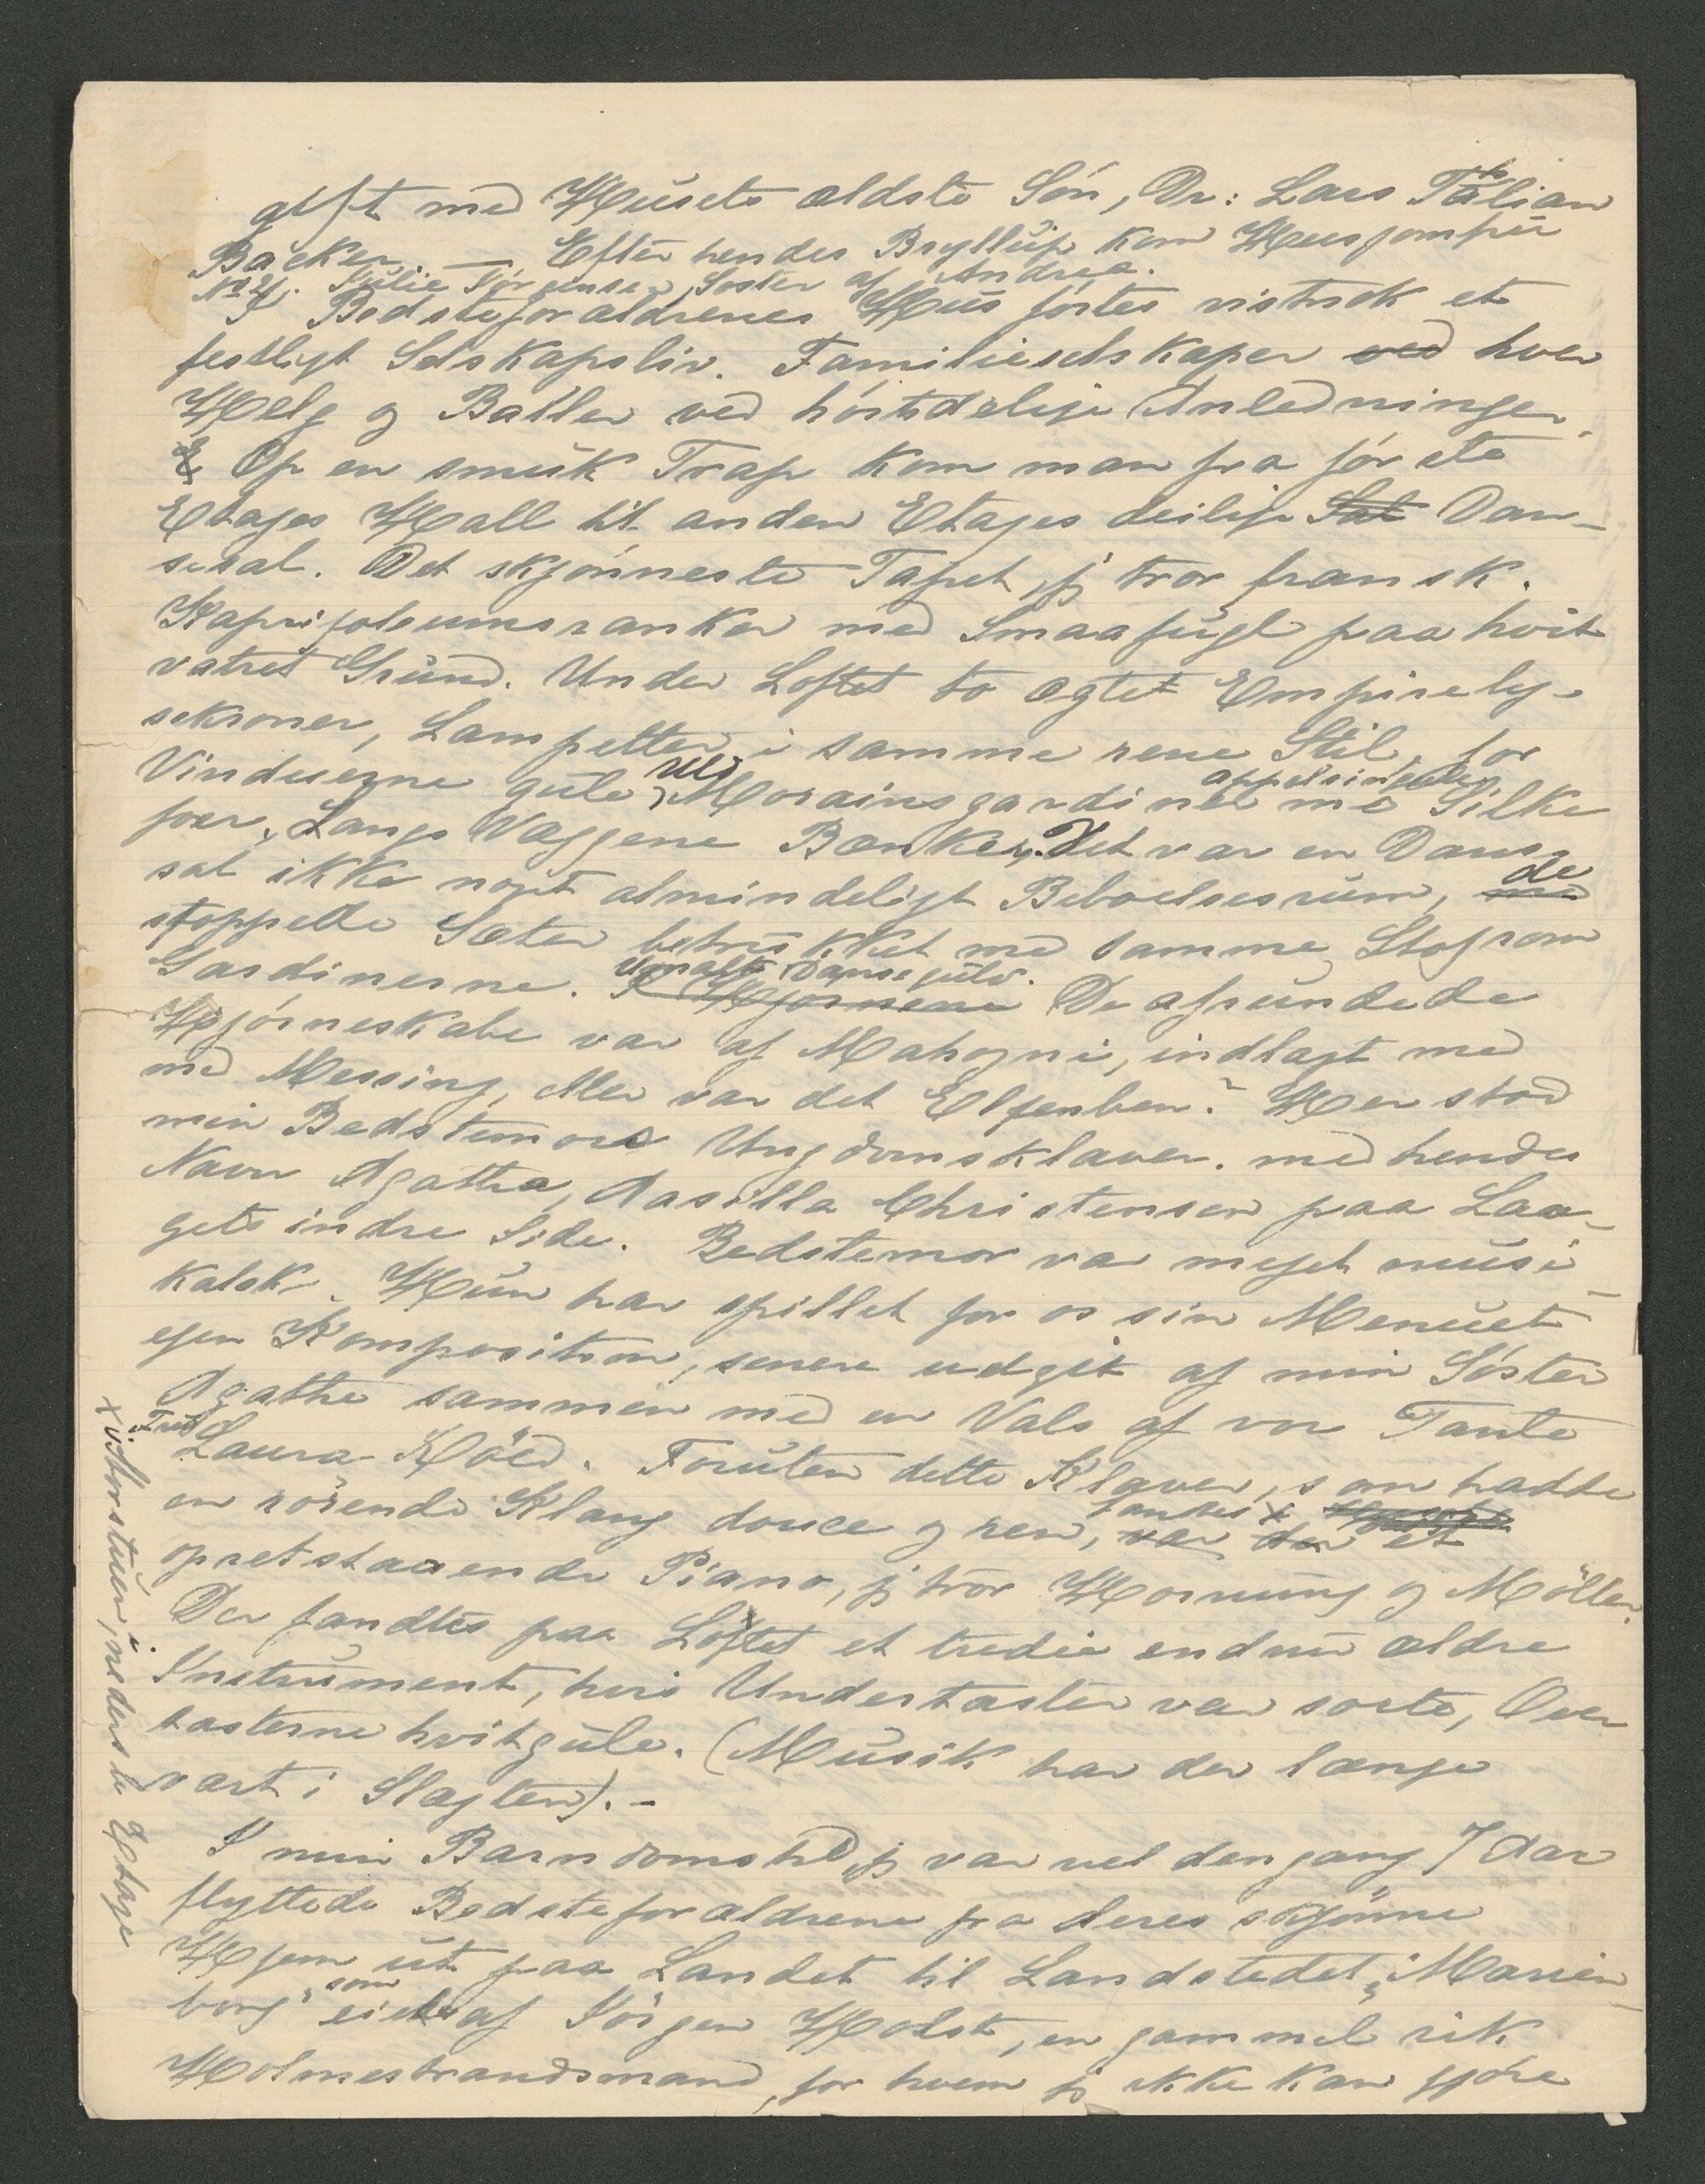 gift med Husets ældste Søn, Dr: Lars Tălian
Backer. — Efter hendes Bryllup kom Husjomfru
No 2. Julie Jørgensen, Søster af Andrea.
I Bedsteforældrenes Hus førtes vistnok et
festligt Selskapsliv. Familieselskaper ved hver
Helg og Baller ved høitidelige Anledninger.
E Op en smuk Trap kom man fra første
Etages Hall til anden Etages deilige Sal Dan-
sesal. Det skjønneste Tapet, jeg tror fransk.
Kaprifoleumsranker med Smaafugl paa hvit
vatret Grund. Under Loftet to ægte Empirely-
sekroner, Lampetter i samme rene Stil, for
Vinduerne gule Uld Morainsgardiner med appelsingule Silke
foer. Langs Væggene Bænker. Det var en Danse-
sal ikke noget almindeligt Beboelsesrum, med de
stoppede Sæter betrukket med samme Stof som
Gardinerne. Umalt Dansegulv. I Hjørnene De afrundede
Hjørneskabe var af Mahogni, indlagt med
med Messing, eller var det Elfenben? Her stod
min Bedstemors Ungdomsklaver. med hendes
Navn Agatha, Aasilla Christensen paa Laa-
gets indre Side. Bedstemor var meget musi-
kalsk. Hun har spillet for os sin Menuet
egen Komposition, senere udgit af min Søster
Agathe sammen med en Vals af vor Tante
Fru Laura Röed. Foruten dette Klaver, som hadde
en rørende Klang douce og ren, var der fandtes x et
opretstaaende Piano, jeg tror Hornung og Möller.
Der fandtes paa Loftet et tredie endnu ældre
Instrument, hvis Undertaster var sorte, Over
tasterne hvitgule. (Musik har der længe
vært i Slægten). -
I min Barndomstid, jeg var vel dengang 7 Aar
flyttede Bedsteforældrene fra deres skjønne
Hjem ut paa Landet til Landstedet „Marien-
borg" som eides af Jörgen Holst, en gammel rik
Holmestrandsmand, for hvem jeg ikke kan gjøre
x i Storstuen, i nederste Etage